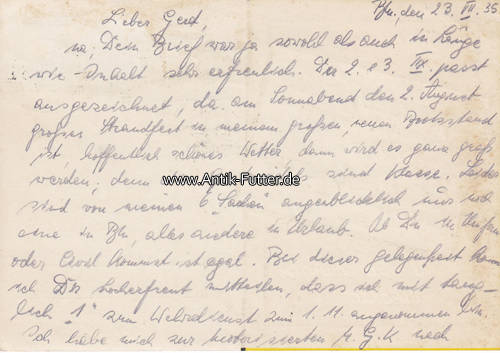 Bln. den 23. VII. 35
Lieber Gert,
na, Dein Brief war ja sowohl als auch in Länge
wie Inhalt sehr erfreulich. Der 2. e 3. passt
ausgezeichnet, da am Sonnabend den 2. August
großes Strandfest in meinem großen, neuen
ist, hoffentlich schönes Wetter dann wird es ganz groß
werden, denn sind Klasse. Leider
www.Antik-Futter.de
sind von meinen 6 "Sachen" augenblicklich nur noch
eine in Bln, alles andere in Urlaub. Ob Du in Uniform
oder Civil kommst ist egal. Bei dieser Gelegenheit kann
ich Dir mitteilen, dass ich mit taug-
lich "1" zum Wehrdienst zum 1. 11. angenommen bin.
Ich habe mich zur motorisierten M.G.K nach